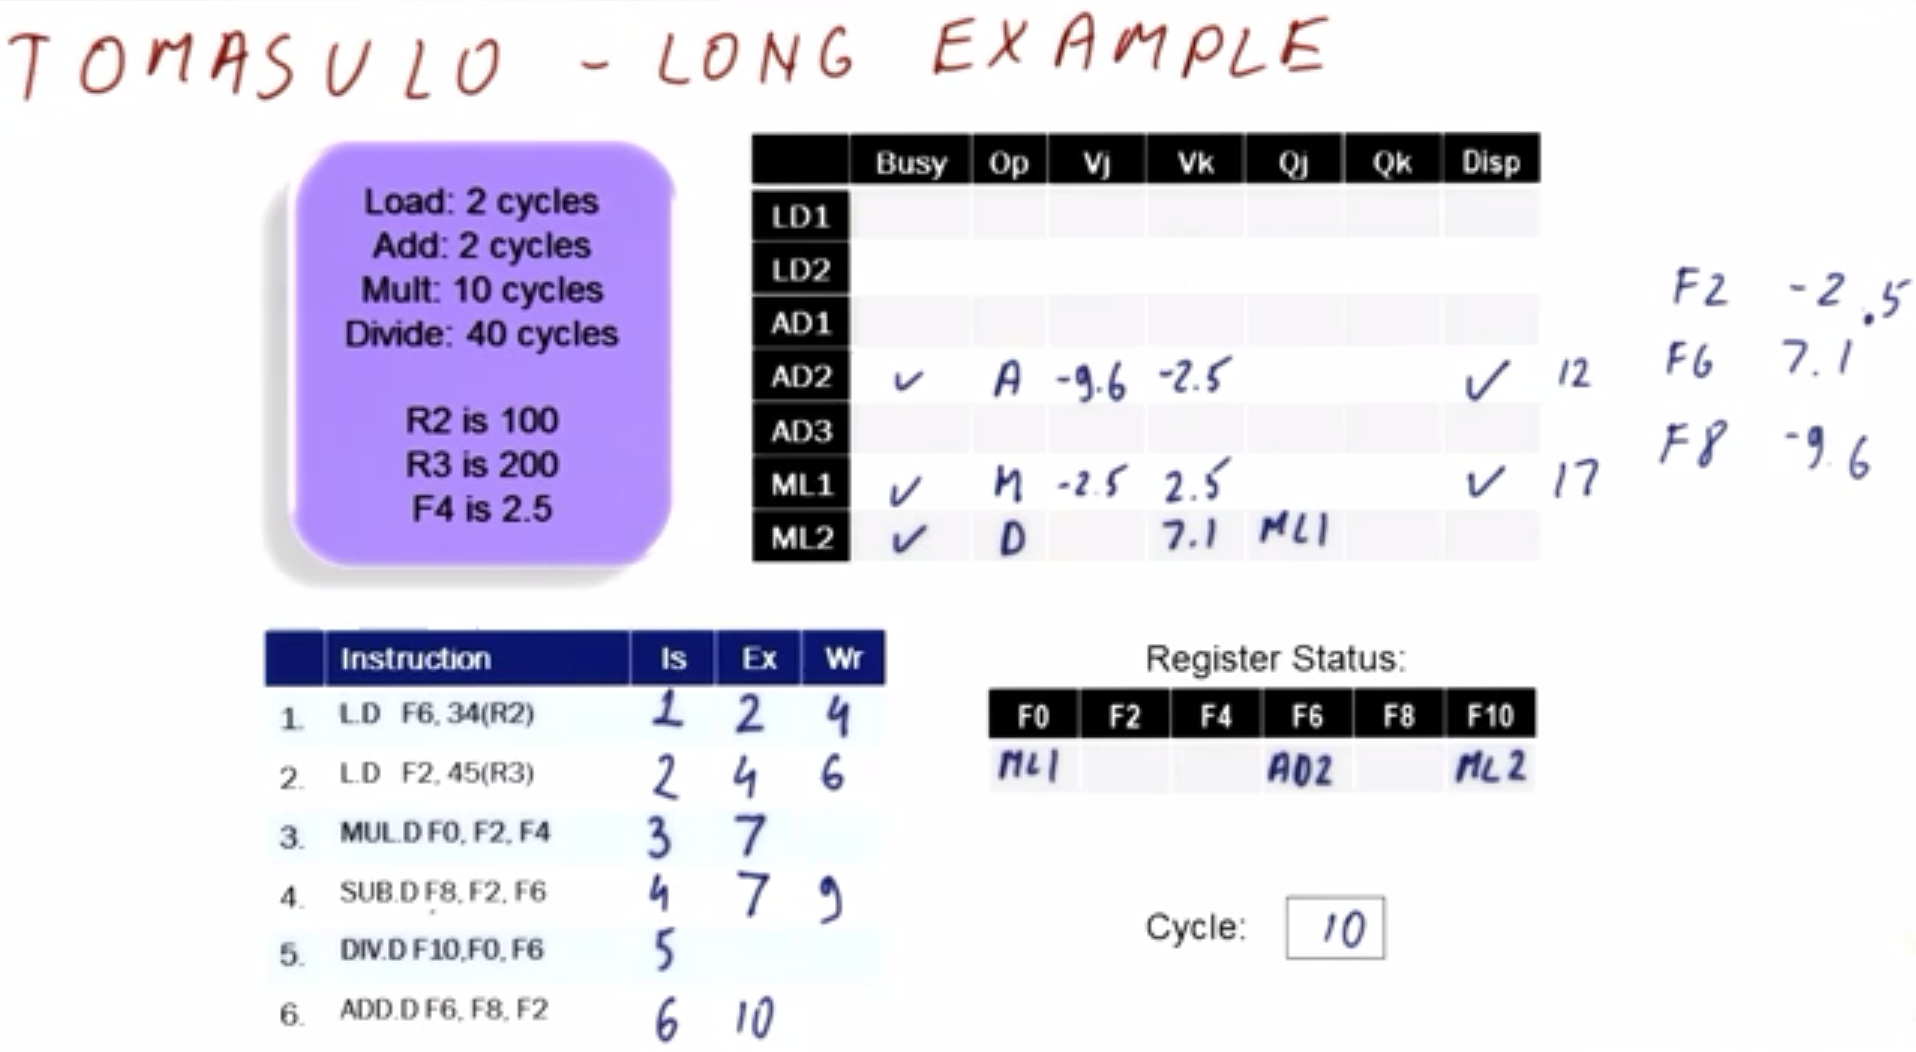 TOMASULO - LONG EXAMPLE
Load: 2 cycles
Add: 2 cycles
Mult: 10 cycles
Divide: 40 cycles
R2 is 100
R3 is 200
F4 is 2.5
Busy Op Vj Vk Qj Qk Disp
LD1
LD2
AD1
AD2 ✓ A -9.6 -2.5 ✓ 12
AD3
ML1 ✓ M -2.5 2.5 ✓ 17
ML2 ✓ D 7.1 ML1
F2 -2.5
F6 7.1
F8 -9.6
Instruction Is Ex Wr
1. L.D F6, 34(R2) 1 2 4
2. L.D F2, 45(R3) 2 4 6
3. MUL.D F0, F2, F4 3 7
4. SUB.D F8, F2, F6 4 7 9
5. DIV.D F10,F0, F6 5
6. ADD.D F6, F8, F2 6 10
Register Status:
F0 F2 F4 F6 F8 F10
ML1 AD2 ML2
Cycle: 10